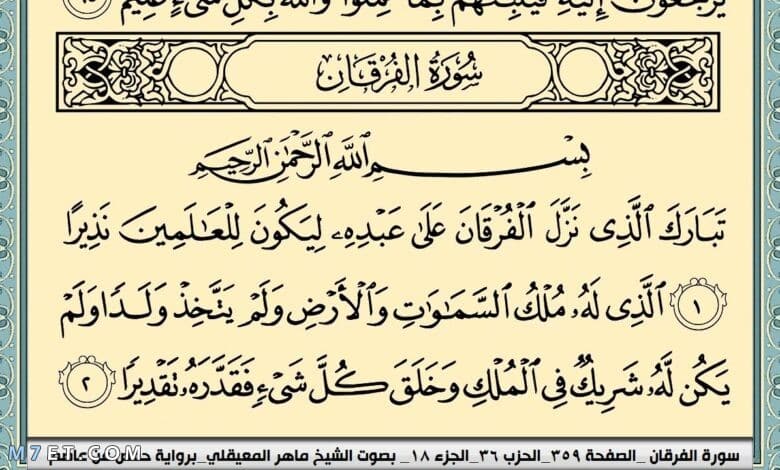 يُرْجَعُونَ إِلَيْهِ فَيُنَبِّئُهُم بِمَا عَمِلُوا۟ وَٱللَّهُ بِكُلِّ شَىْءٍ عَلِيمٌ
سُورَةُ الفُرْقَانِ
بِسْمِ ٱللَّهِ ٱلرَّحْمَٰنِ ٱلرَّحِيمِ
تَبَارَكَ ٱلَّذِى نَزَّلَ ٱلْفُرْقَانَ عَلَىٰ عَبْدِهِۦ لِيَكُونَ لِلْعَٰلَمِينَ نَذِيرًا
١ ٱلَّذِى لَهُۥ مُلْكُ ٱلسَّمَٰوَٰتِ وَٱلْأَرْضِ وَلَمْ يَتَّخِذْ وَلَدًا وَلَمْ
يَكُن لَّهُۥ شَرِيكٌ فِى ٱلْمُلْكِ وَخَلَقَ كُلَّ شَىْءٍ فَقَدَّرَهُۥ تَقْدِيرًا ٢
سورة الفرقان _الصفحة ٣٥٩_الحزب ٣٦_الجزء ١٨_ بصوت الشيخ ماهر المعيقلي_برواية حفص عن عاصم
M7ET.COM